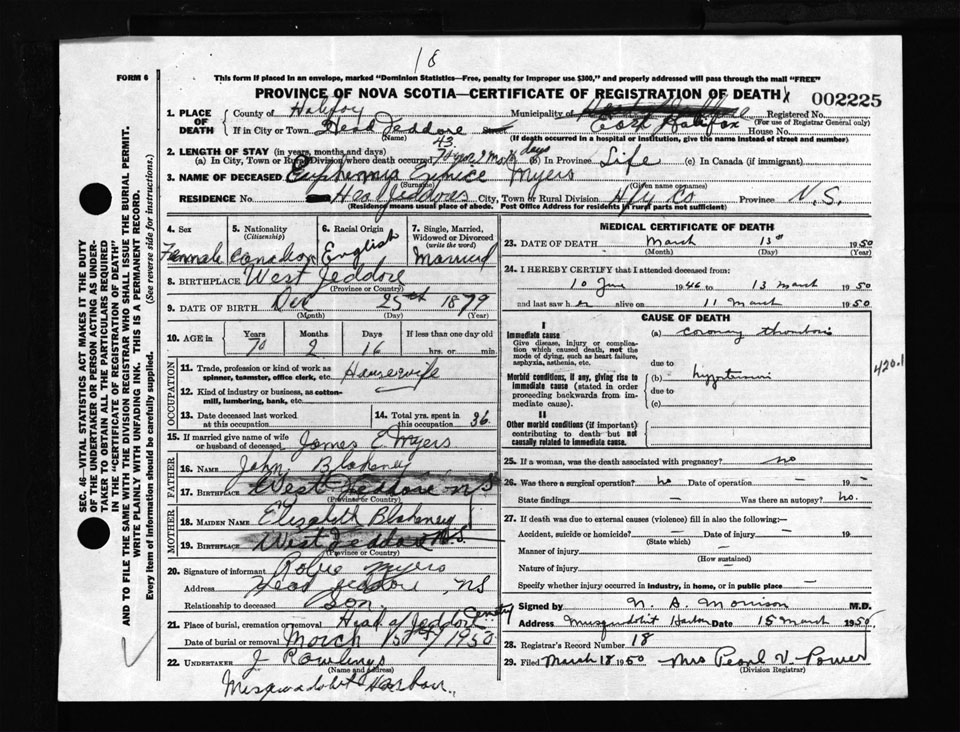 18
FORM 6
This form if placed in an envelope, marked "Dominion Statistics—Free, penalty for improper use $300," and properly addressed will pass through the mail "FREE"
PROVINCE OF NOVA SCOTIA—CERTIFICATE OF REGISTRATION OF DEATH
002225
1. PLACE OF DEATH County of Halifax Municipality of East Halifax Registered No.
(For use of Registrar General only)
If in City or Town Head Jeddore Street House No.
(Name) (If death occurred in a hospital or institution, give its name instead of street and number)
2. LENGTH OF STAY (in years, months and days)
(a) In City, Town or Rural Division where death occurred 43 days (b) In Province Life (c) In Canada (if immigrant)
3. NAME OF DECEASED Euphemia Eunice Myers
(Surname) (Given name or names)
RESIDENCE No. Head Jeddore City, Town or Rural Division Hfx Co Province N.S.
(Residence means usual place of abode. Post Office Address for residents in rural parts not sufficient)
4. Sex Female
5. Nationality (Citizenship) Canadian
6. Racial Origin English
7. Single, Married, Widowed or Divorced (write the word) Married
8. BIRTHPLACE West Jeddore
(Province or Country)
9. DATE OF BIRTH Dec 25th 1879
(Month) (Day) (Year)
10. AGE in Years Months Days If less than one day old
70 2 16 hrs. or min.
OCCUPATION
11. Trade, profession or kind of work as spinner, teamster, office clerk, etc. Housewife
12. Kind of industry or business, as cotton-mill, lumbering, bank, etc.
13. Date deceased last worked at this occupation
14. Total yrs. spent in this occupation 36
15. If married give name of wife or husband of deceased James E Myers
FATHER
16. NAME John Blakeney
17. BIRTHPLACE West Jeddore N S
(Province or Country)
MOTHER
18. MAIDEN NAME Elizabeth Blakeney
19. BIRTHPLACE West Jeddore N.S.
(Province or Country)
20. Signature of informant Robie Myers
Address Head Jeddore, NS
Relationship to deceased Son
21. Place of burial, cremation or removal Head of Jeddore Cemetry
Date of burial or removal March 15th 1950
22. UNDERTAKER J Rowlings
(Name and address)
Musquodoboit Harbour
MEDICAL CERTIFICATE OF DEATH
23. DATE OF DEATH March 13th 1950
(Month) (Day) (Year)
24. I HEREBY CERTIFY that I attended deceased from:
10 June 1946 to 13 March 1950
and last saw her alive on 11 March 1950
CAUSE OF DEATH
I
Immediate cause
Give disease, injury or complication which caused death, not the mode of dying, such as heart failure, asphyxia, asthenia, etc.
(a) coronary thrombosis
due to
Morbid conditions, if any, giving rise to immediate cause (stated in order proceeding backwards from immediate cause).
(b) hypertension
due to
(c)
420.1
II
Other morbid conditions (if important) contributing to death but not causally related to immediate cause.
25. If a woman, was the death associated with pregnancy? no
26. Was there a surgical operation? no Date of operation — 19 —
State findings — Was there an autopsy? no.
27. If death was due to external causes (violence) fill in also the following:—
Accident, suicide or homicide? Date of injury — 19
(State which)
Manner of injury —
(How sustained)
Nature of injury —
Specify whether injury occurred in industry, in home, or in public place —
Signed by N. S. Morrison M.D.
Address Musquodoboit Harbour Date 15 March 1950
28. Registrar's Record Number 18
29. Filed March 18 1950 Mrs Pearl V. Power
(Division Registrar)
SEC. 46—VITAL STATISTICS ACT MAKES IT THE DUTY OF THE UNDERTAKER OR PERSON ACTING AS UNDERTAKER TO OBTAIN ALL THE PARTICULARS REQUIRED IN THE "CERTIFICATE OF REGISTRATION OF DEATH" AND TO FILE THE SAME WITH THE DIVISION REGISTRAR WHO SHALL ISSUE THE BURIAL PERMIT.
WRITE PLAINLY WITH UNFADING INK. THIS IS A PERMANENT RECORD.
Every item of information should be carefully supplied. (See reverse side for instructions.)